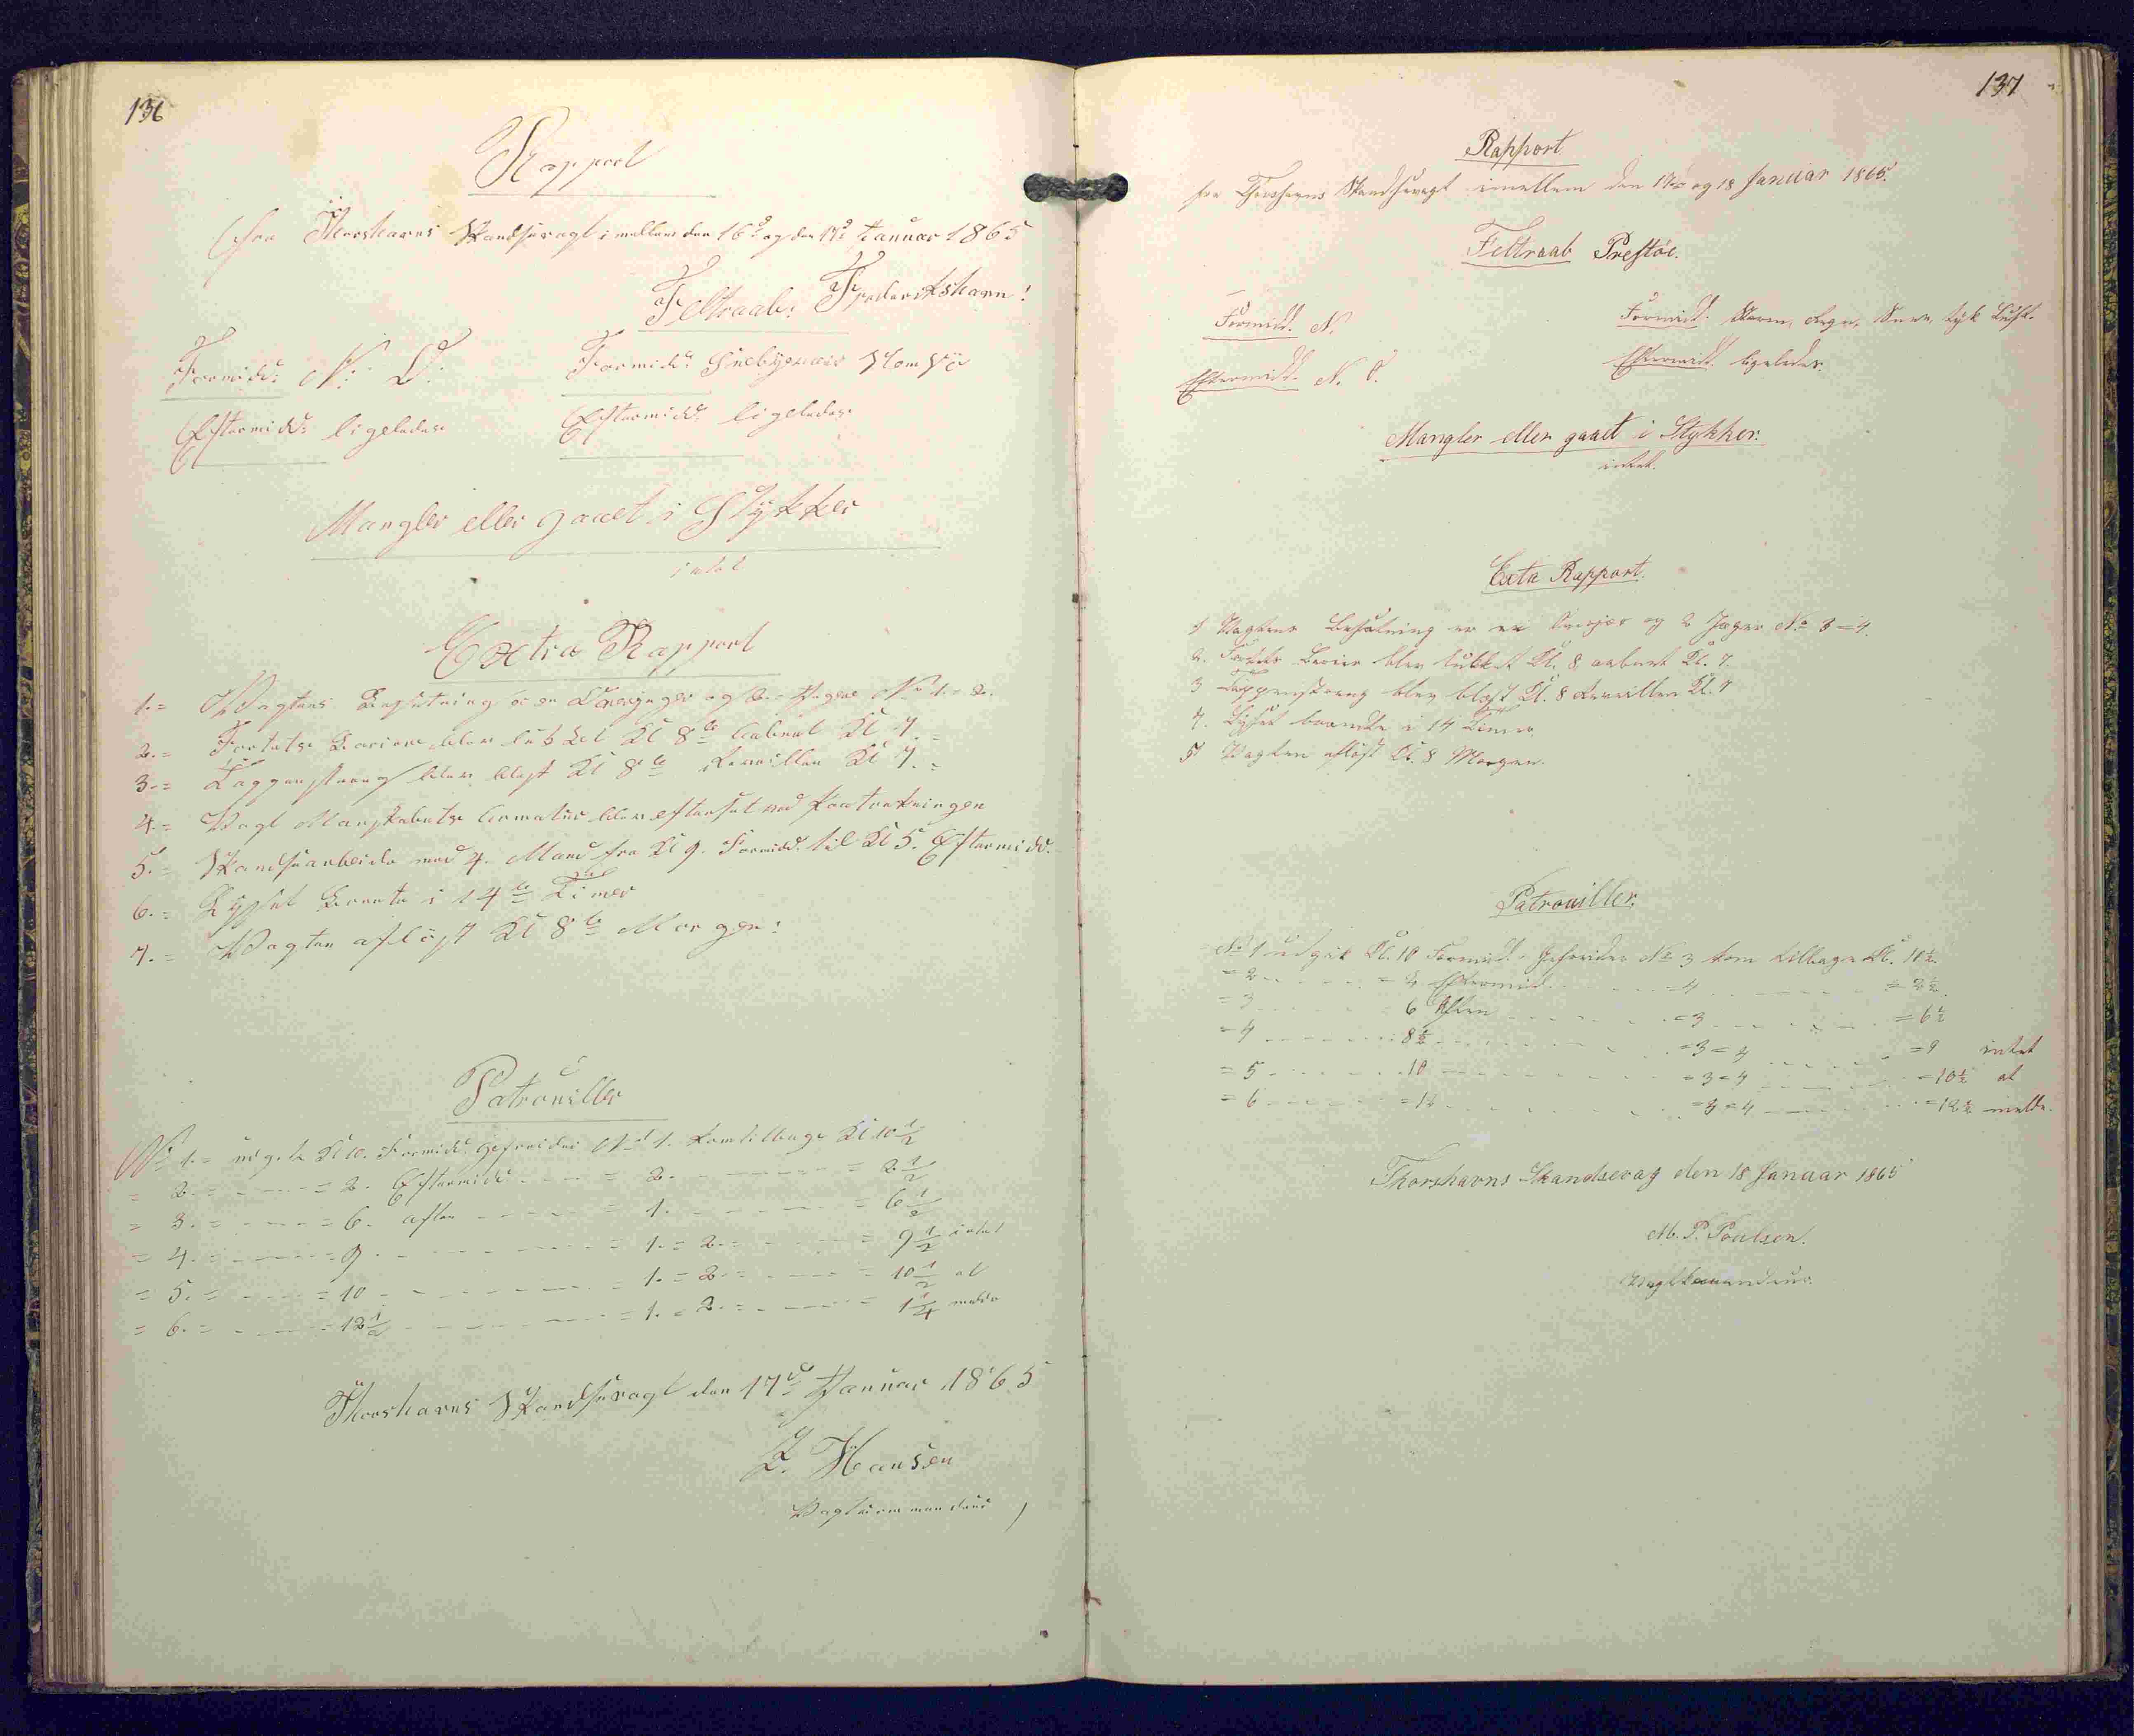 136
Rapport
fra Thorshavns Skandsevagt imellem den 16de og den 17de Januar 1865
Feltraab: Frederikshavn!
Formidd: N: O: Formidd: Snebyger Storm
Eftermidd: ligeledes Eftermidd: ligeledes
Mangler eller gaaet i Stykker
intet
Extra Rapport
1.= Vagtens Besætning er en Oversjæger og 2 Jægere No 1.= 2.
2.= Fortets Barriere blev lukket Kl 8te Aabnet Kl 7.=
3.= Tappenstreg blev blæst Kl 8te Reveillen Kl 7.=
4.= Vagt Mandskabets Armatur blev efterset ved Fratrædningen
5.= Skandsearbeide med 4. Mand fra Kl 9. Formidd. til Kl 5. Eftermidd.
6.= Lyset brændte i 14te Timer
7.= Vagten afløst Kl 8te Morgen:
Patrouiller
No 1.= udgik Kl 10. Formidd. Gefreider No 1. kom tilbage Kl 10 1/2
= 2.= = 2. Eftermidd = 2. = 2 1/2
= 3.= = 6. Aften = 1. = 6 1/2
= 4.= = 9 = 1.= 2.= = 9 1/2 intet
= 5.= = 10 = 1.= 2.= = 10 1/2 at
= 6.= = 12 1/2 = 1.= 2.= = 1 1/4 melde
Thorshavns Skandsevagt den 17de Januar 1865
Z. Hansen
Vagtkommandeur
137
Rapport
fra Thorshavns Skandsevagt imellem den 17de og 18 Januar 1865.
Feltraab Prestøe.
Formidd. N. Formidd. Storm, Regn, Snee, tyk Luft.
Eftermidd. N. O. Eftermidd. ligeledes.
Mangler eller gaaet i Stykker.
intet.
Exta Rapport.
1 Vagtens Besætning er en Oversjæ og 2 Jæger No 3=4.
2. Fortets Barrier blev lukket Kl. 8 aabnet Kl. 7.
3 Tappenstreng blev blæst Kl. 8 Reveillen Kl. 7
4. Lyset brændte i 14 Timer.
5 Vagten afløst Kl. 8 Morgen.
Patrouiller.
No 1 udgik Kl. 10 Formidd. Gefreider No 3 kom tilbage Kl. 10 1/2
= 2 = 2 Eftermid. =4 = 2 1/2
= 3 6 Aften =3 = 6 1/2
= 4 8 1/2 =3=4 =9 intet
= 5 10 =3=4 =10 1/2 at
= 6 =12 =3=4 =12 1/2 melde.
Thorshavns Skandsevag den 18 Januar 1865
M. P. Poulsen.
Vagtkommandeur.